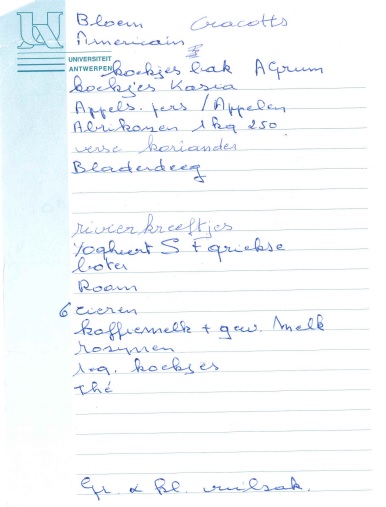 Bloem Cracotts
Americain
UNIVERSITEIT
ANTWERPEN
koekjes bak Agrum
koekjes Kasia
Appels. pers / Appelen
Abrikozen 1 kg 250
verse koriander
Bladerdeeg
rivierkreeftjes
Yoghurt S + griekse
boter
Room
6 eieren
koffiemelk + gew. melk
rozijnen
koekjes
Thé
Gr. & bl. vuilzak.